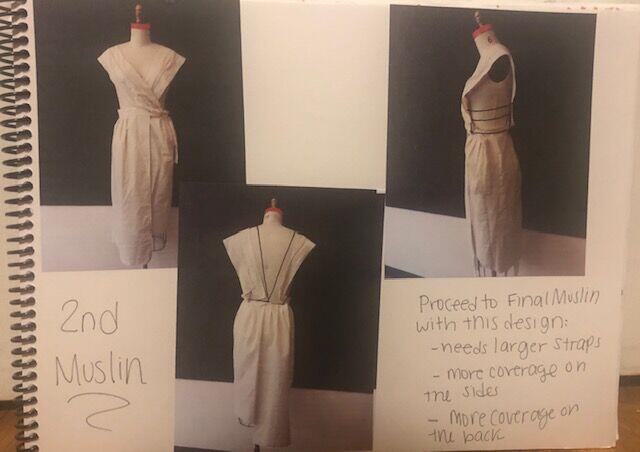 2nd
Muslin
Proceed to Final Muslin
with this design:
- needs larger straps
- more coverage on
the sides
- More coverage on
the back